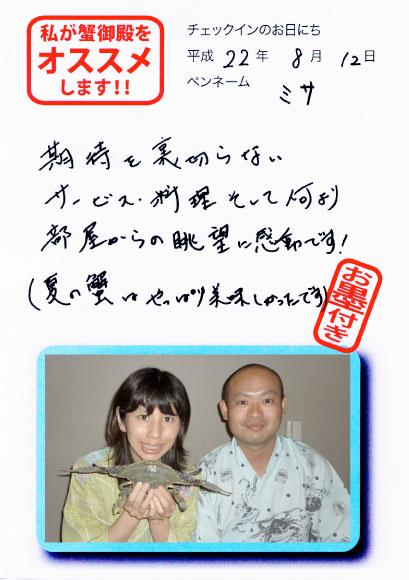 私が蟹御殿を
オススメ
します!!
チェックインのお日にち
平成 22年 8月 12日
ペンネーム
ミサ
期待を裏切らない
サービス・料理 そして何より
部屋からの眺望に感動です!
(夏の蟹はやっぱり美味しかったです)
お墨付き